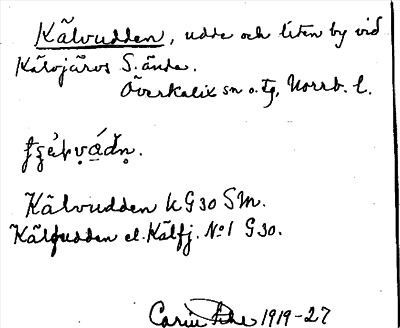 Kälvudden, udde och liten by vid
Kälvjärvs S. ända.
Överkalix sn o. tg, Norrb. l.
Kälvudden k G30 SM.
Kälfudden el. Kälfj. No 1 G30.
Carin 1919-27